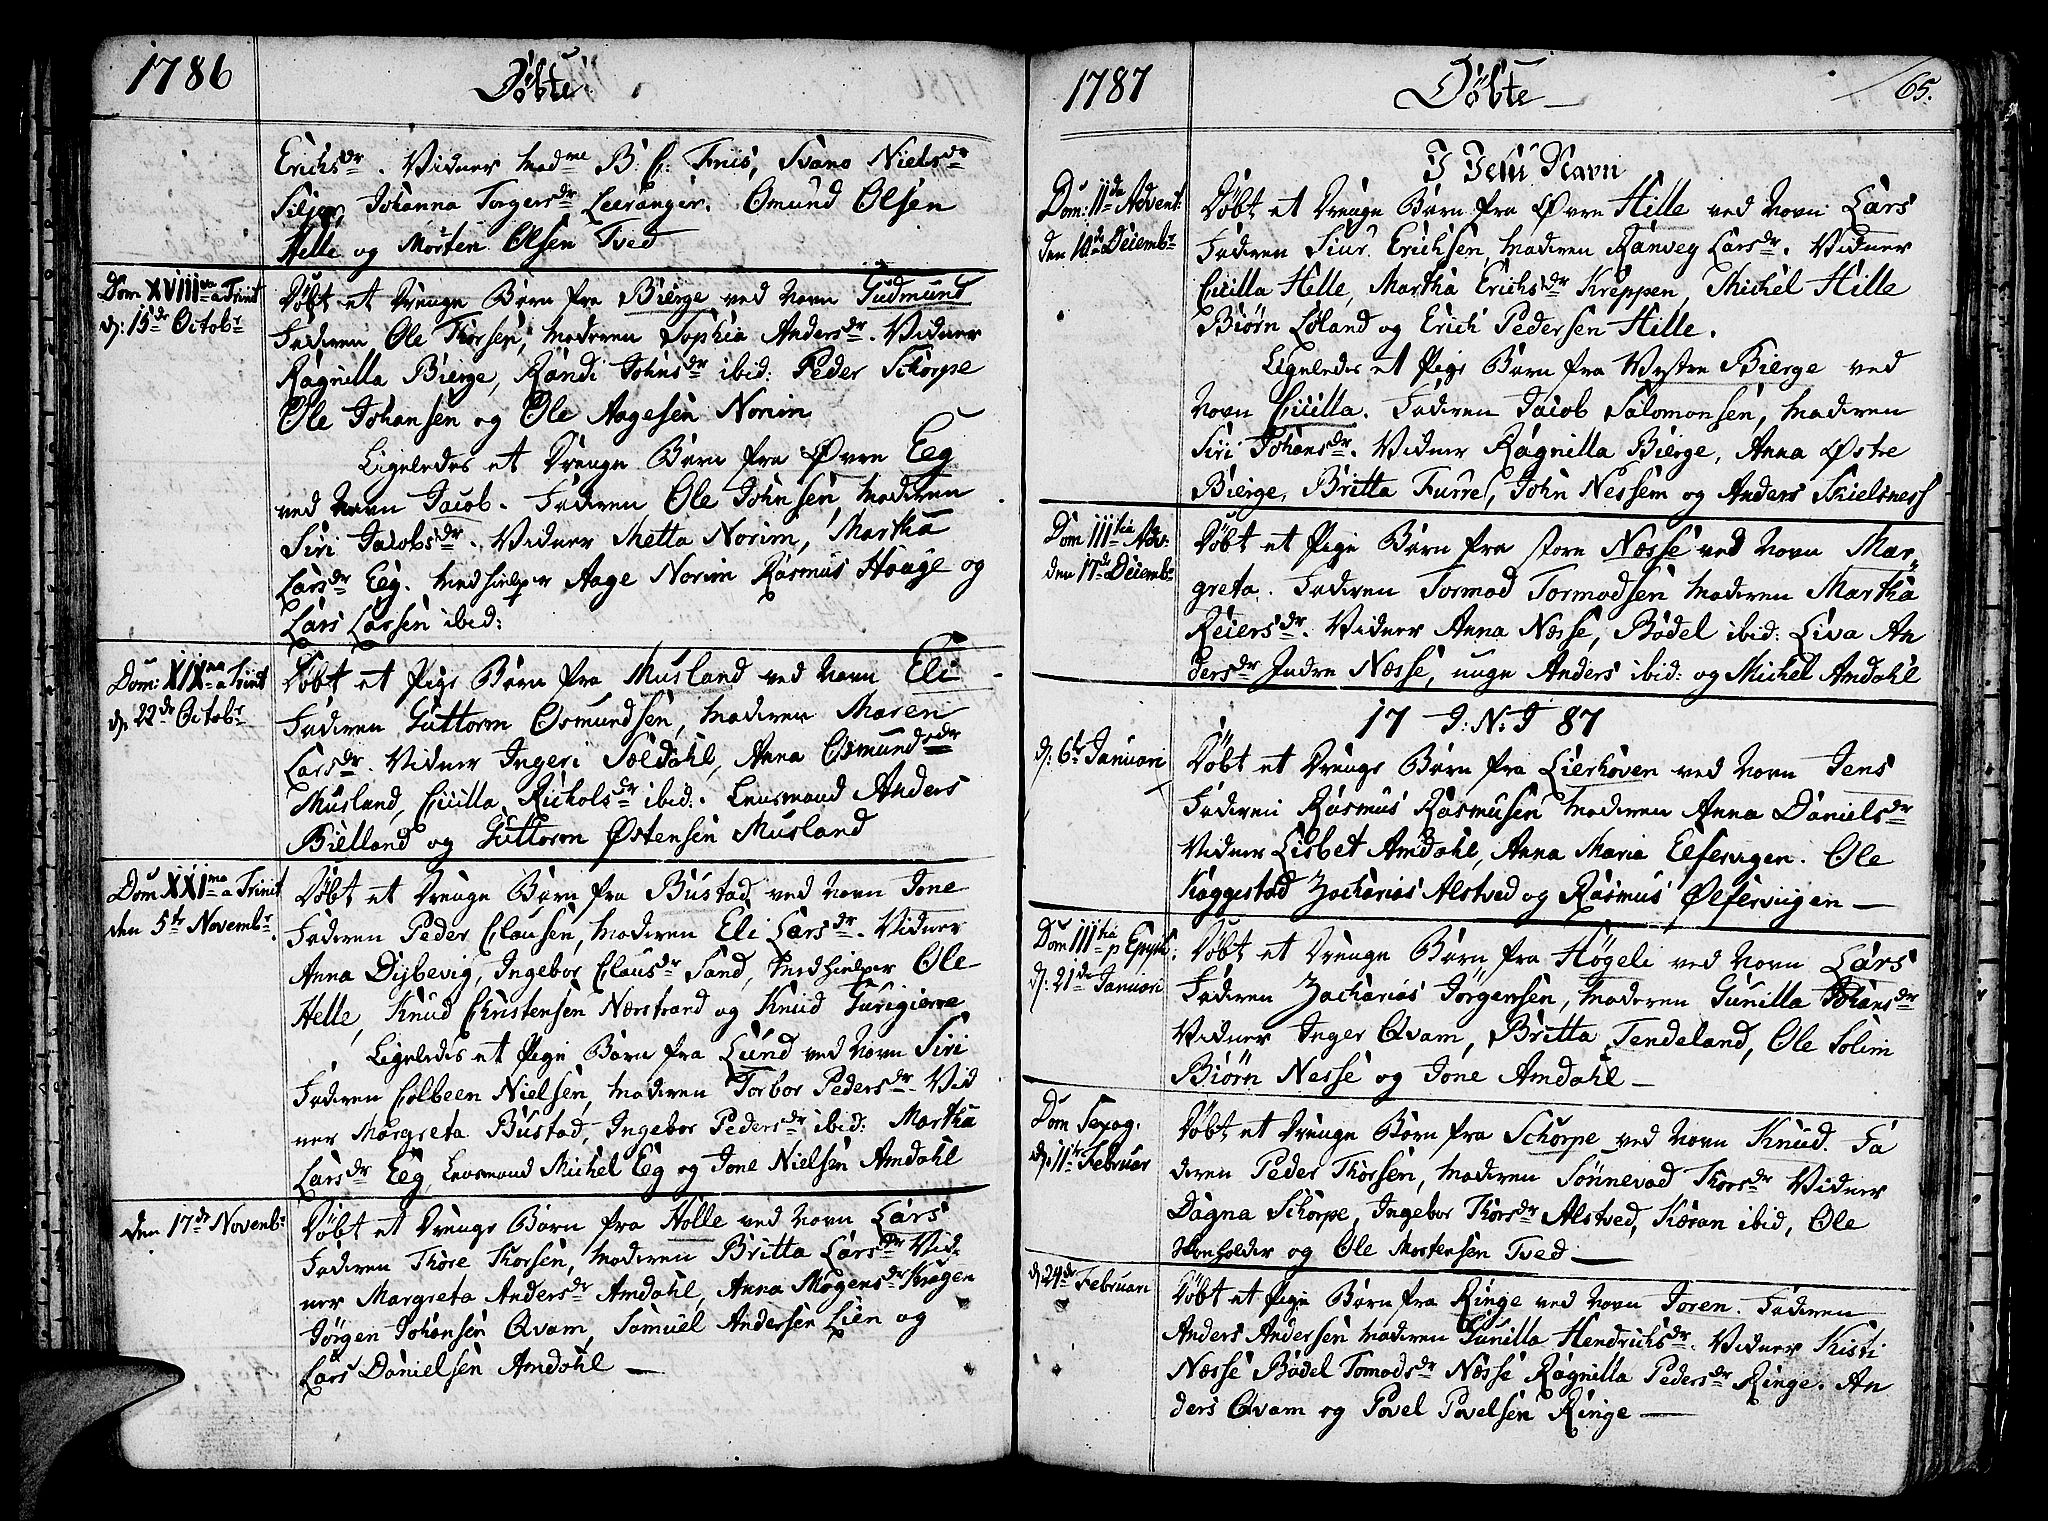 1786
Døbte.
Erichsdr. Vidner Madme B: C: Friis, Svano Nielsdr
Siljer, Johanna Torgersdr Leeranger. Omund Olsen
Helle og Morten Olsen Tved
Dom XVIIIva a Trinit
d: 15de Octobr
Døbt et Drenge Barn fra Bierge ved Navn Gudmund
Faderen Ole Thorsen, Moderen Sophia Andersdr. Vidner
Ragnilla Bierge, Randi Johnsdr ibid: Peder Schorpe
Ole Johansen og Ole Aagesen Norim
Ligeledes et Drenge Barn fra Øvre Eeg
ved Navn Jacob. Faderen Ole Johnsen, Moderen
Siri Jacobsdr. Vidner Metta Norim, Martha
Larsdr Eeg. Medhielper Aage Norim Rasmus Hauge og
Lars Larsen ibid:
Dom: XIXna a Trinit
d: 22de Octobr
Døbt et Pige Barn fra Musland ved Navn Eli
Faderen Guttorm Osmundsen, Moderen Maren
Larsdr. Vidner Ingeri Soldahl, Anna Osmundsdr
Musland, Cicilla Richolsdr ibid: Lensmand Anders
Bielland og Guttorm Østensen Musland
Dom XXIma a Trinit
den 5te Novembr.
Døbt et Drenge Barn fra Bustad ved Navn Jone
Faderen Peder Clausen, Moderen Eli Larsdr. Vidner
Anna Dysbevig, Ingebor Clausdr Sand, Medhielper Ole
Helle, Knud Christensen Nærstrand og Knud Turigierre
Ligeledes et Pige Barn fra Lund ved Navn Siri
Faderen Colbeen Nielsen, Moderen Torbor Pedersdr. Vid
ner Margreta Bustad, Ingebor Pedersdr ibid: Martha
Larsdr Eeg, Lensmand Michel Eeg og Jone Nielsen Amdahl
den 17de Novembr
Døbt et Drenge Barn fra Holle ved Navn Lars
Faderen Thore Thorsen, Moderen Britta Larsdr Vid-
ner Margreta Andersdr Amdahl, Anna Mogensdr Kragen
Jørgen Johansen Qvam, Samuel Andersen Lien og
Lars Danielsen Amdahl —
1787
Døbte —
65.
I Jesu Navn
Dom: IIda Advent:
den 10de Decembr
Døbt et Drenge Barn fra Øvre Hille ved Navn Lars
Faderen Siur Erichsen, Moderen Ranveg Larsdr. Vidner
Cicilla Hille, Martha Erichsdr Kreppen, Michel Hille
Biørn Løland og Erich Pedersen Hille.
Ligeledes et Pige Barn fra Vestre Bierge ved
Navn Cicilla. Faderen Jacob Salomonsen, Moderen
Siri Johansdr. Vidner Ragnilla Bierge, Anna Østre
Bierge, Britta Furre, John Nessem og Anders Skielsness
Dom IIItia Adv:
den 17de Decembr
Døbt et Pige Barn fra store Næsse ved Navn Mar-
greta. Faderen Tormod Tormodsen Moderen Martha
Reiersdr. Vidner Anna Næsse, Bodel ibid: Liva An
dersdr Indre Næsse, unge Anders ibid: og Michel Amdahl
17 I: N: J 87
d: 6te Januari
Døbt et Drenge Barn fra Lierhoven ved Navn Jens
Faderen Rasmus Rasmusen Moderen Anna Danielsdr
Vidner Lisbet Amdahl, Anna Maria Eelfervigen. Ole
Kaggestad Zacharias Alstved og Rasmus Ølfervigen —
Dom IIItia p Epiph:
d: 21de Januari
Døbt et Drenge Barn fra Høgeli ved Navn Lars
Faderen Zacharias Jørgensen, Moderen Gunilla Johansdr
Vidner Inger Qvam, Britta Tendeland, Ole Solim
Biørn Nesse og Jone Amdahl —
Dom Sexag.
d: 11te Februar
Døbt et Drenge Barn fra Schorpe ved Navn Knud. Fa
deren Peder Thorsen, Moderen Sønnevad Thorsdr Vidner
Dagna Schorpe, Ingebor Thorsdr Alstved, Karan ibid, Ole
Skeiholder og Ole Mortensen Tved —
d: 24de Februari
Døbt et Pige Barn fra Ringe ved Navn Joren. Faderen
Anders Andersen Moderen Gunilla Hendrichsdr. Vidner Kisti
Næsse Bodel Tomodsdr Næsse Ragnilla Pedersdr Ringe. An
ders Qvam og Povel Povelsen Ringe —